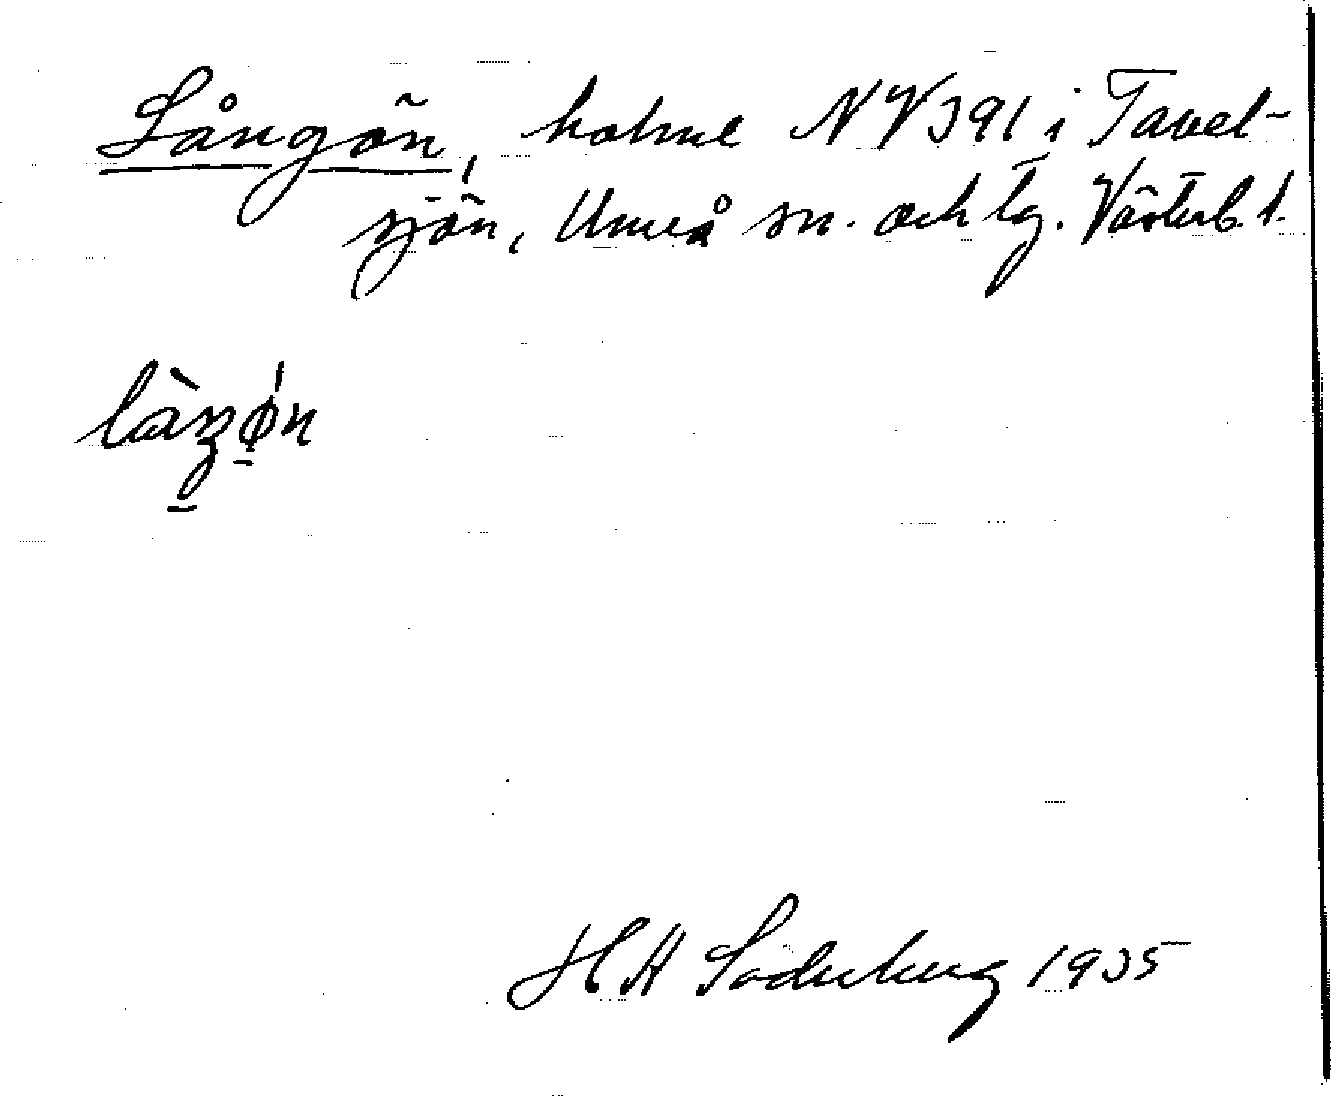 Långön, holme NV391 i Tavel-
sjön, Umeå sn. och tg. Västerb. l.
làŋøn
H H Söderberg 1935